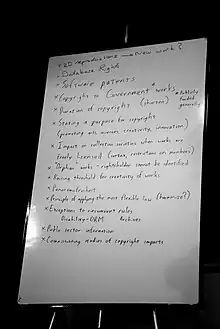 * 2D reproductions → New work?
* Database Rights
* Software patents
* Copyright to Government works
* Publicly funded generally
* Duration of copyrights (shorten)
* Stating a purpose for copyright
(promoting arts, sciences, creativity, innovation)
* Impact on collection societies when works are
freely licensed (extra, restrictions on members)
* Orphan works - rightsholder cannot be identified
* Raising threshold for creativity of works
* Panoramafreiheit
* Principle of applying the most flexible law (harmonise?)
* Exceptions to circumvent rules
Disability - DRM Archives
* Public sector information
* Commissioning studies of copyright impacts